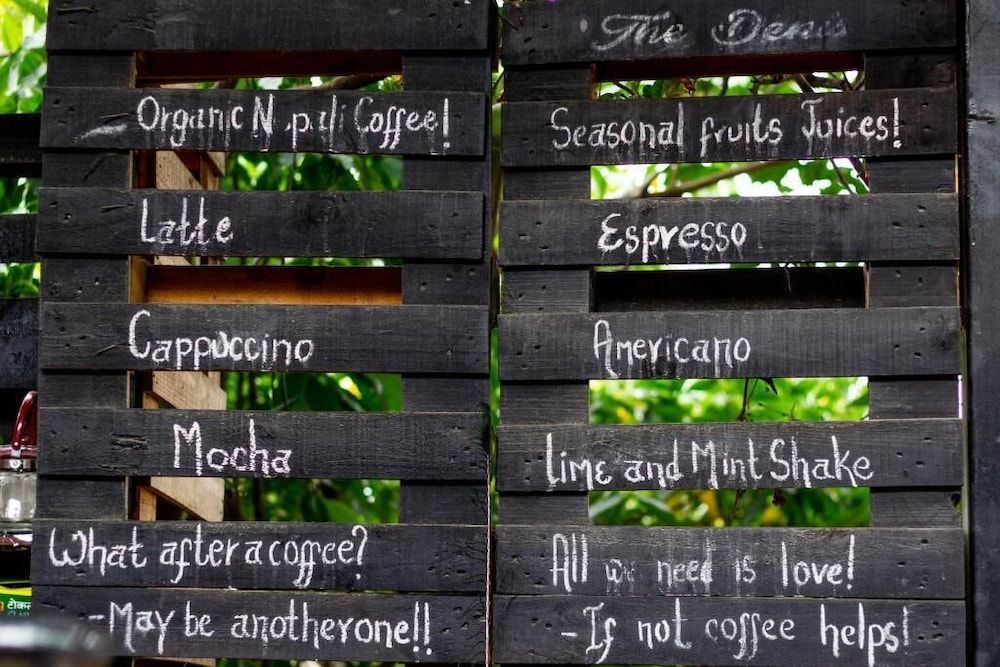 The
Organic Nepali Coffee!
Latte
Cappuccino
Mocha
What after a coffee?
- May be another one!!
Seasonal fruits Juices!
Espresso
Americano
Lime and Mint Shake
All we need is love!
- If not coffee helps!